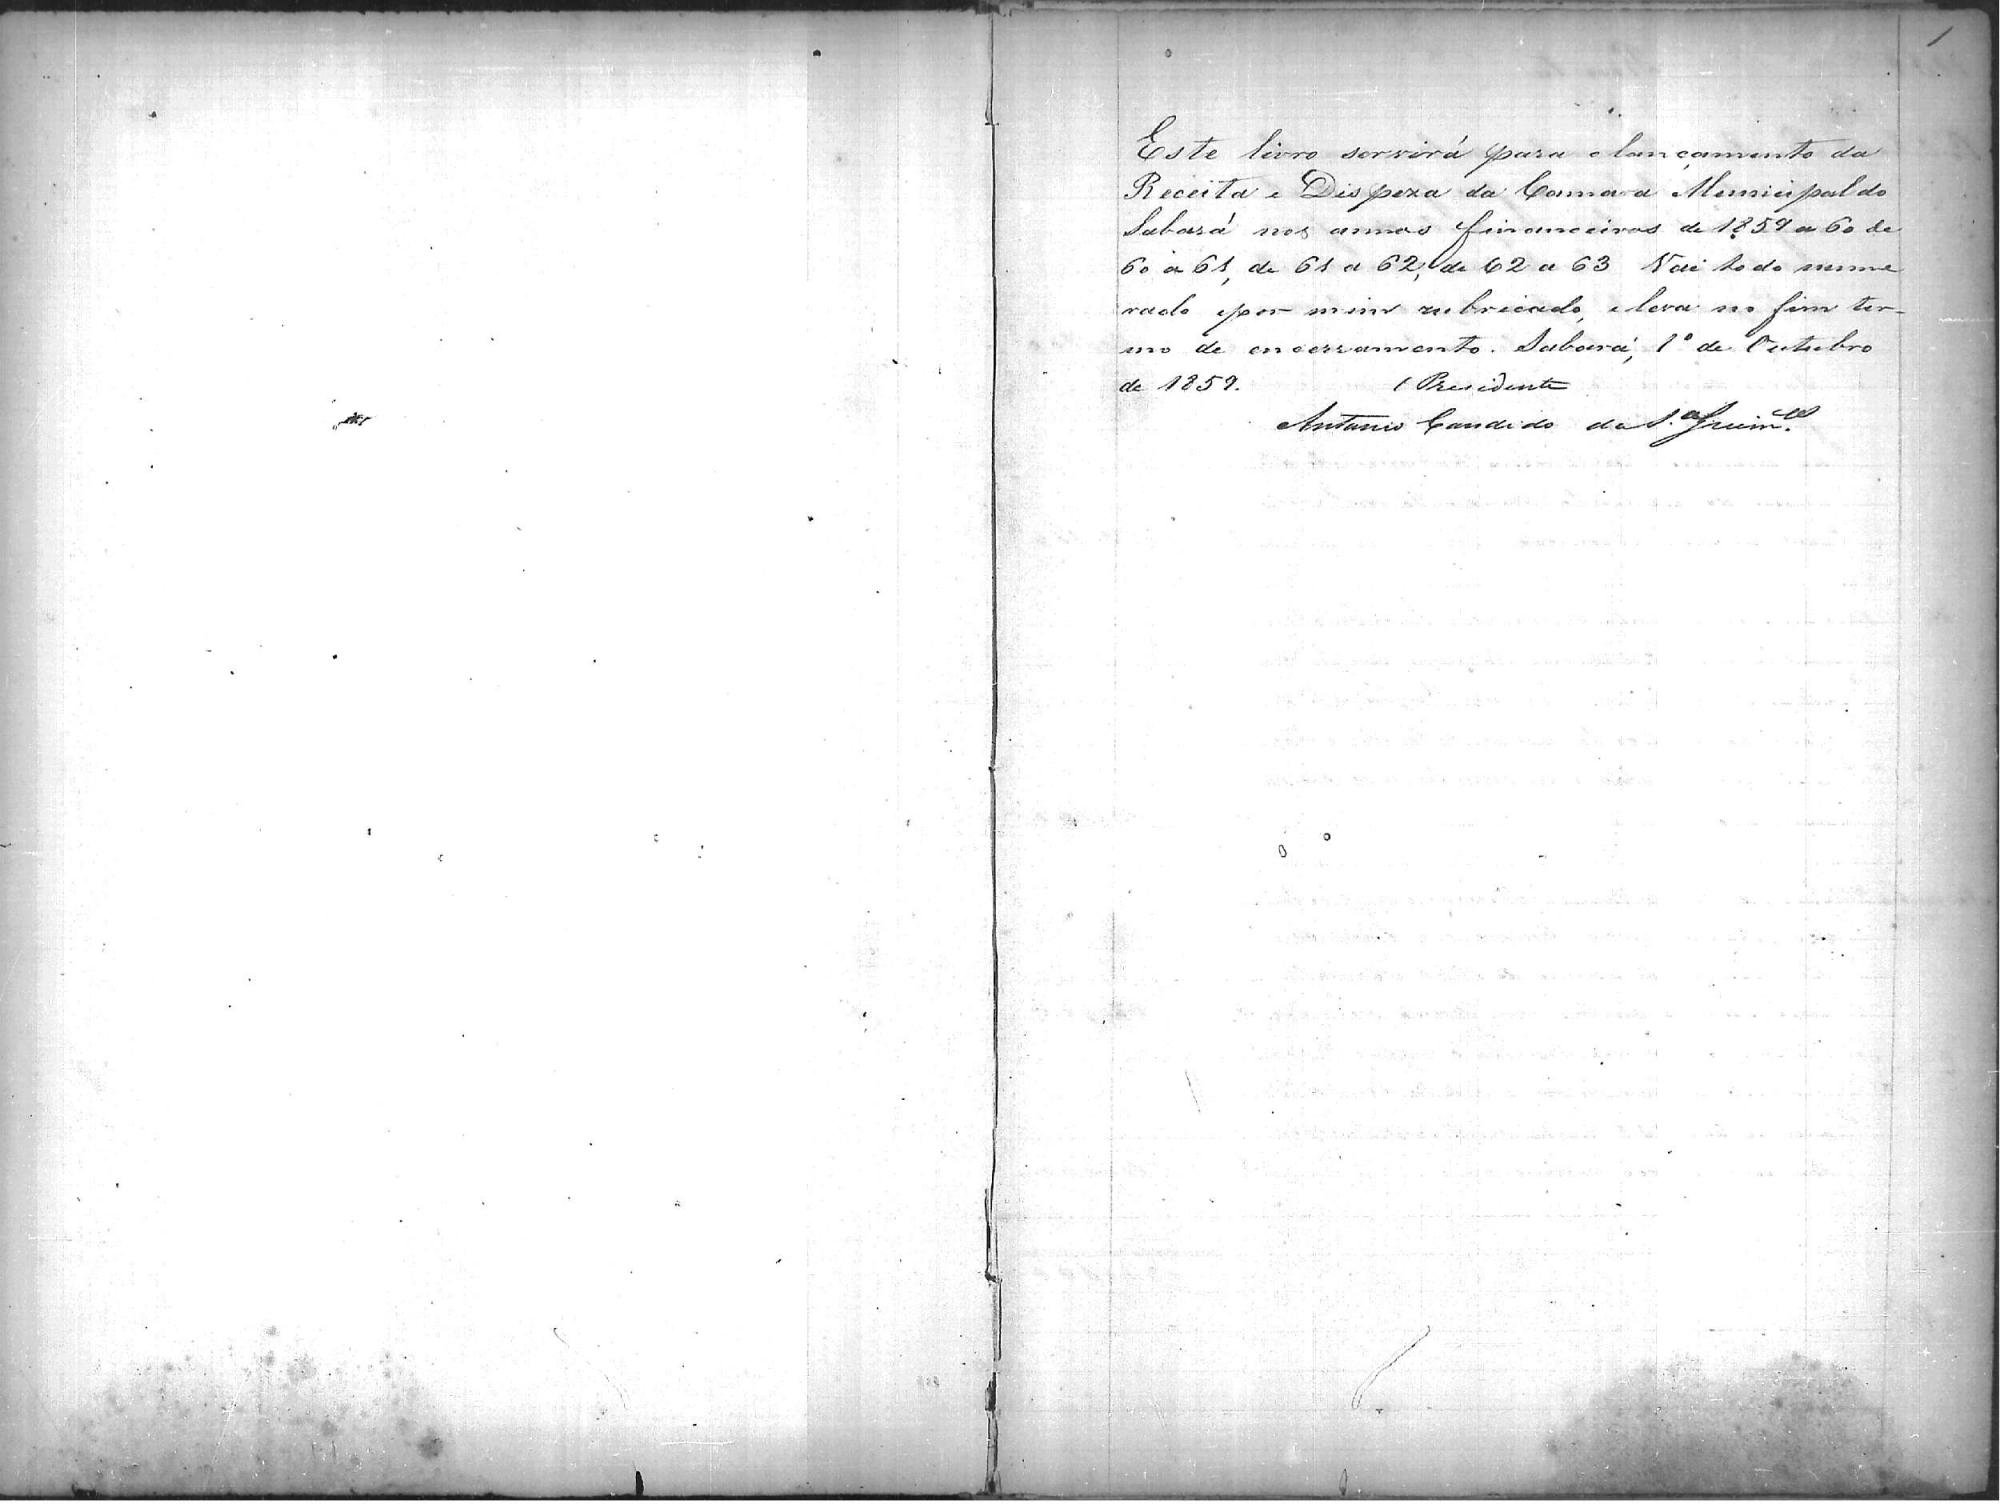 1
Este livro servirá para o lançamento da
Receita e Despeza da Camara Municipal do
Sabará nos annos financeiros de 1859 a 60 de
60 a 61, de 61 a 62, de 62 a 63 Vai todo nume
rado e por mim rubricado, e leva no fim ter-
mo de encerramento. Sabará, 1º de Outubro
de 1859. O Presidente
Antonio Candido da S.ª Guim.es